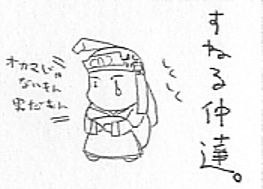 すねる仲達。
しくしく
オカマじゃ
ないもん
男だもん